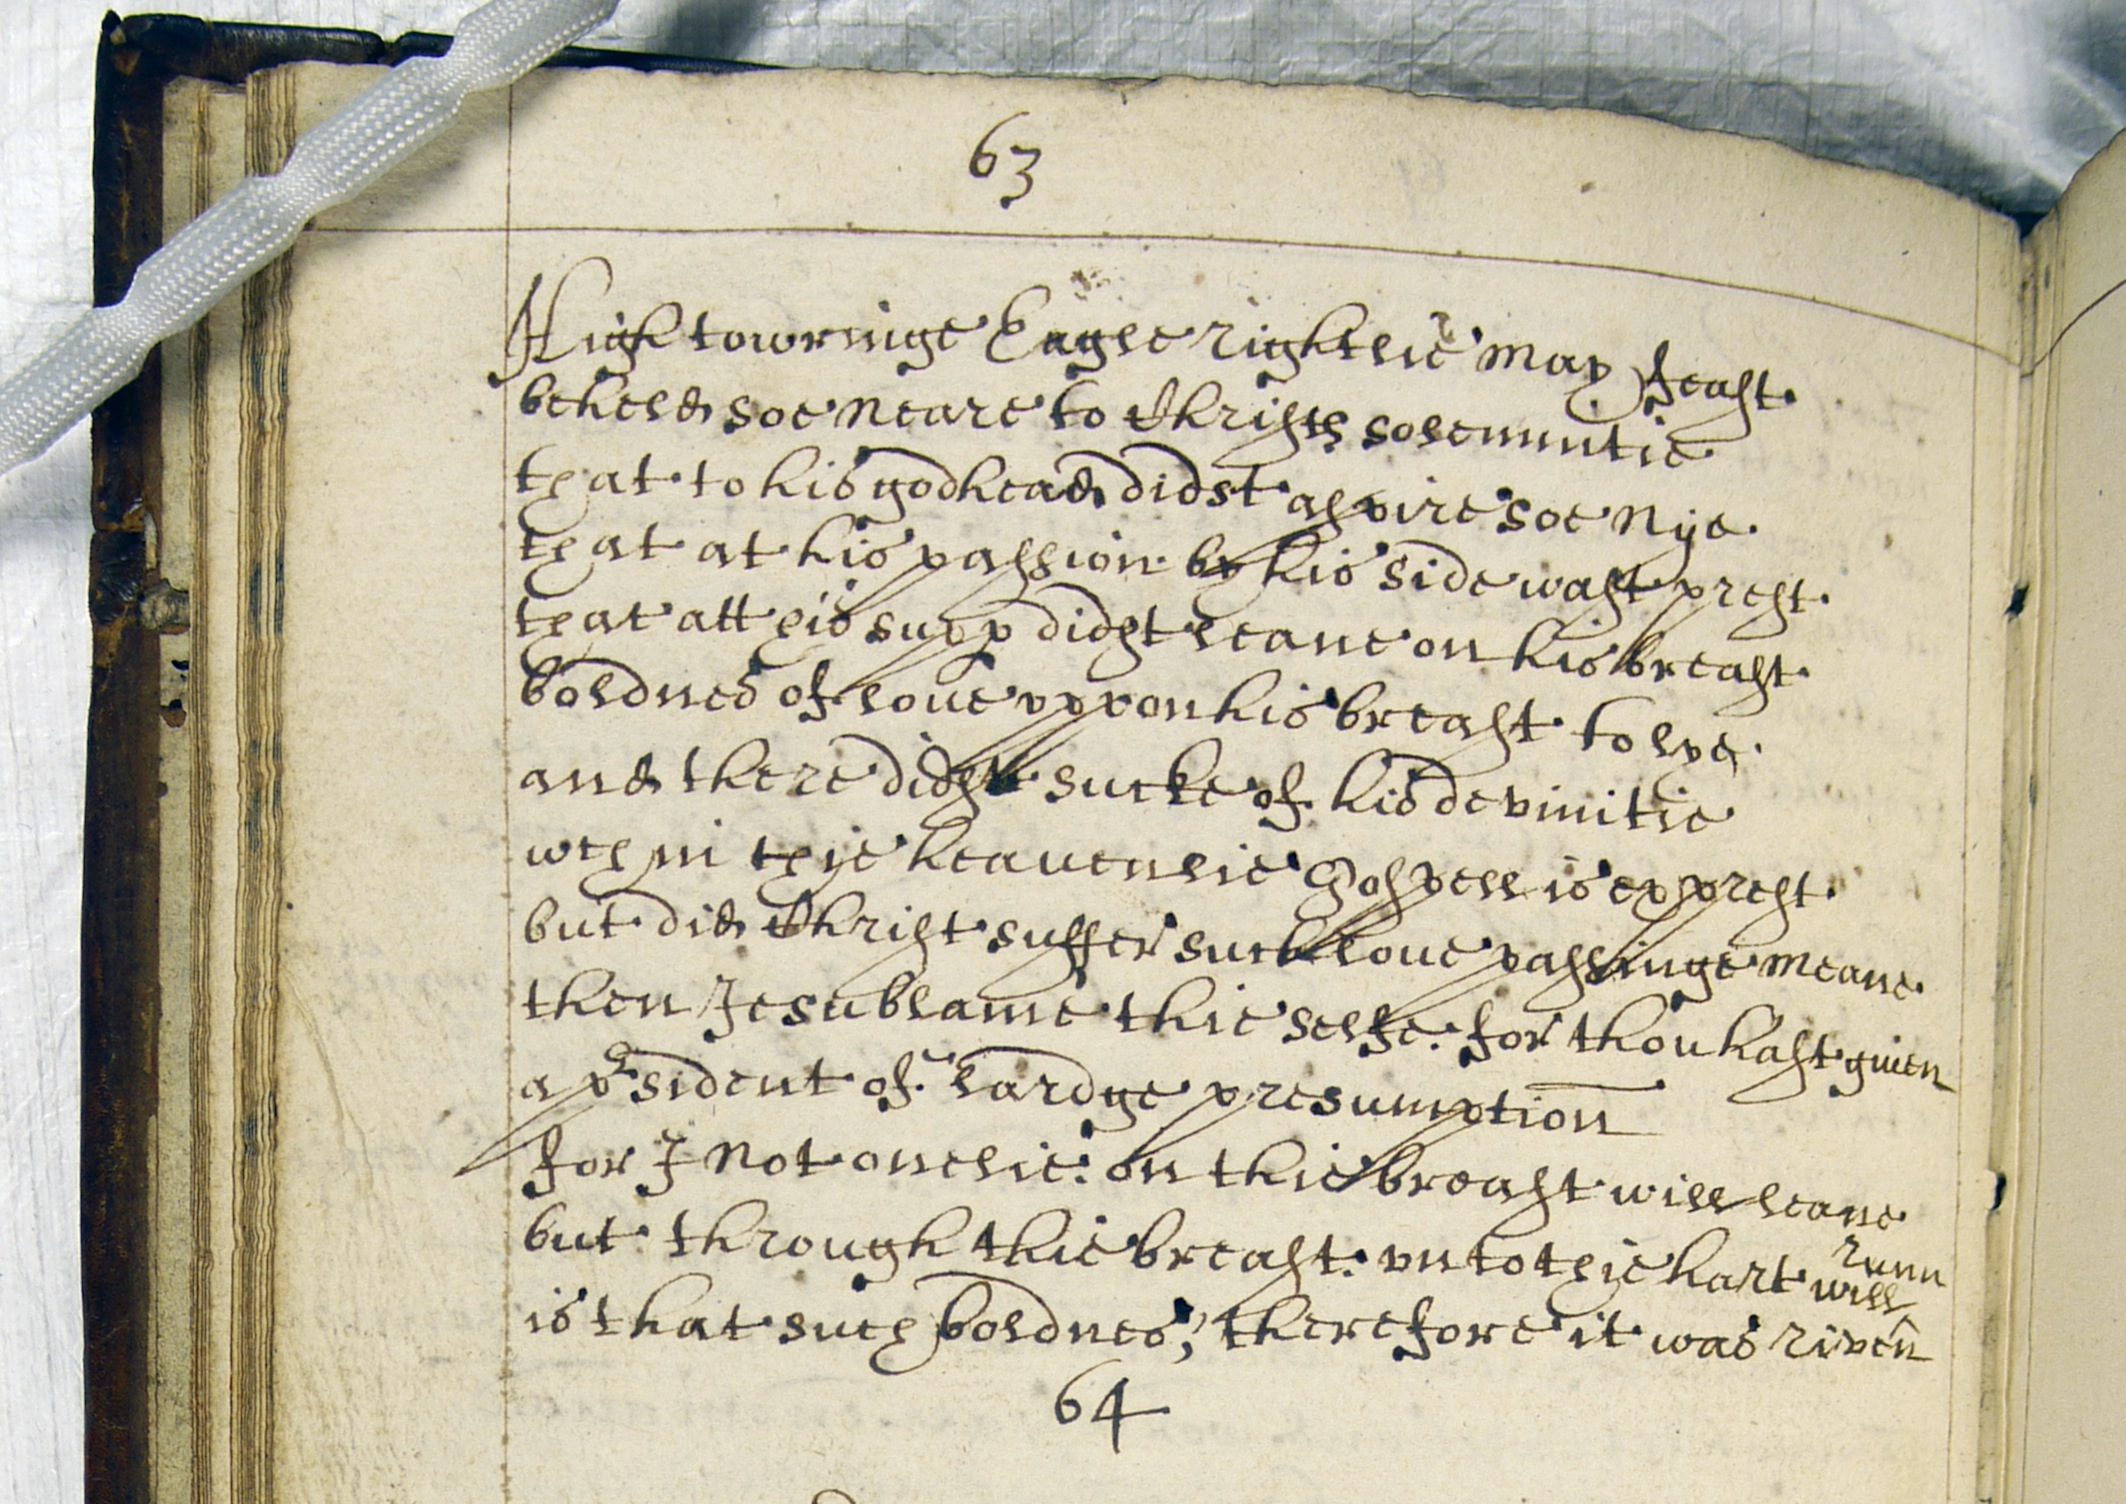 63
High towringe Eagle rightlie may thy feast
beheld soe neare to Christs solemnitie
that to his godhead didst aspire soe nye
that at his passion by his side wast prest
that att his supp didst leane on his breast
boldnes of loue vppon his breast to lye
and there didst sucke of his devinitie
wch in thie heauenlie Gospell is exprest
but did Christ suffer such loue passinge meane
then Jesu blame thie selfe. for thou hast giuen
a prsident of lardge presumption
for I not onelie: on thie breast will leane
but through thie breast: vnto thie hart will runn
is that such boldnes, therefore it was riven
64